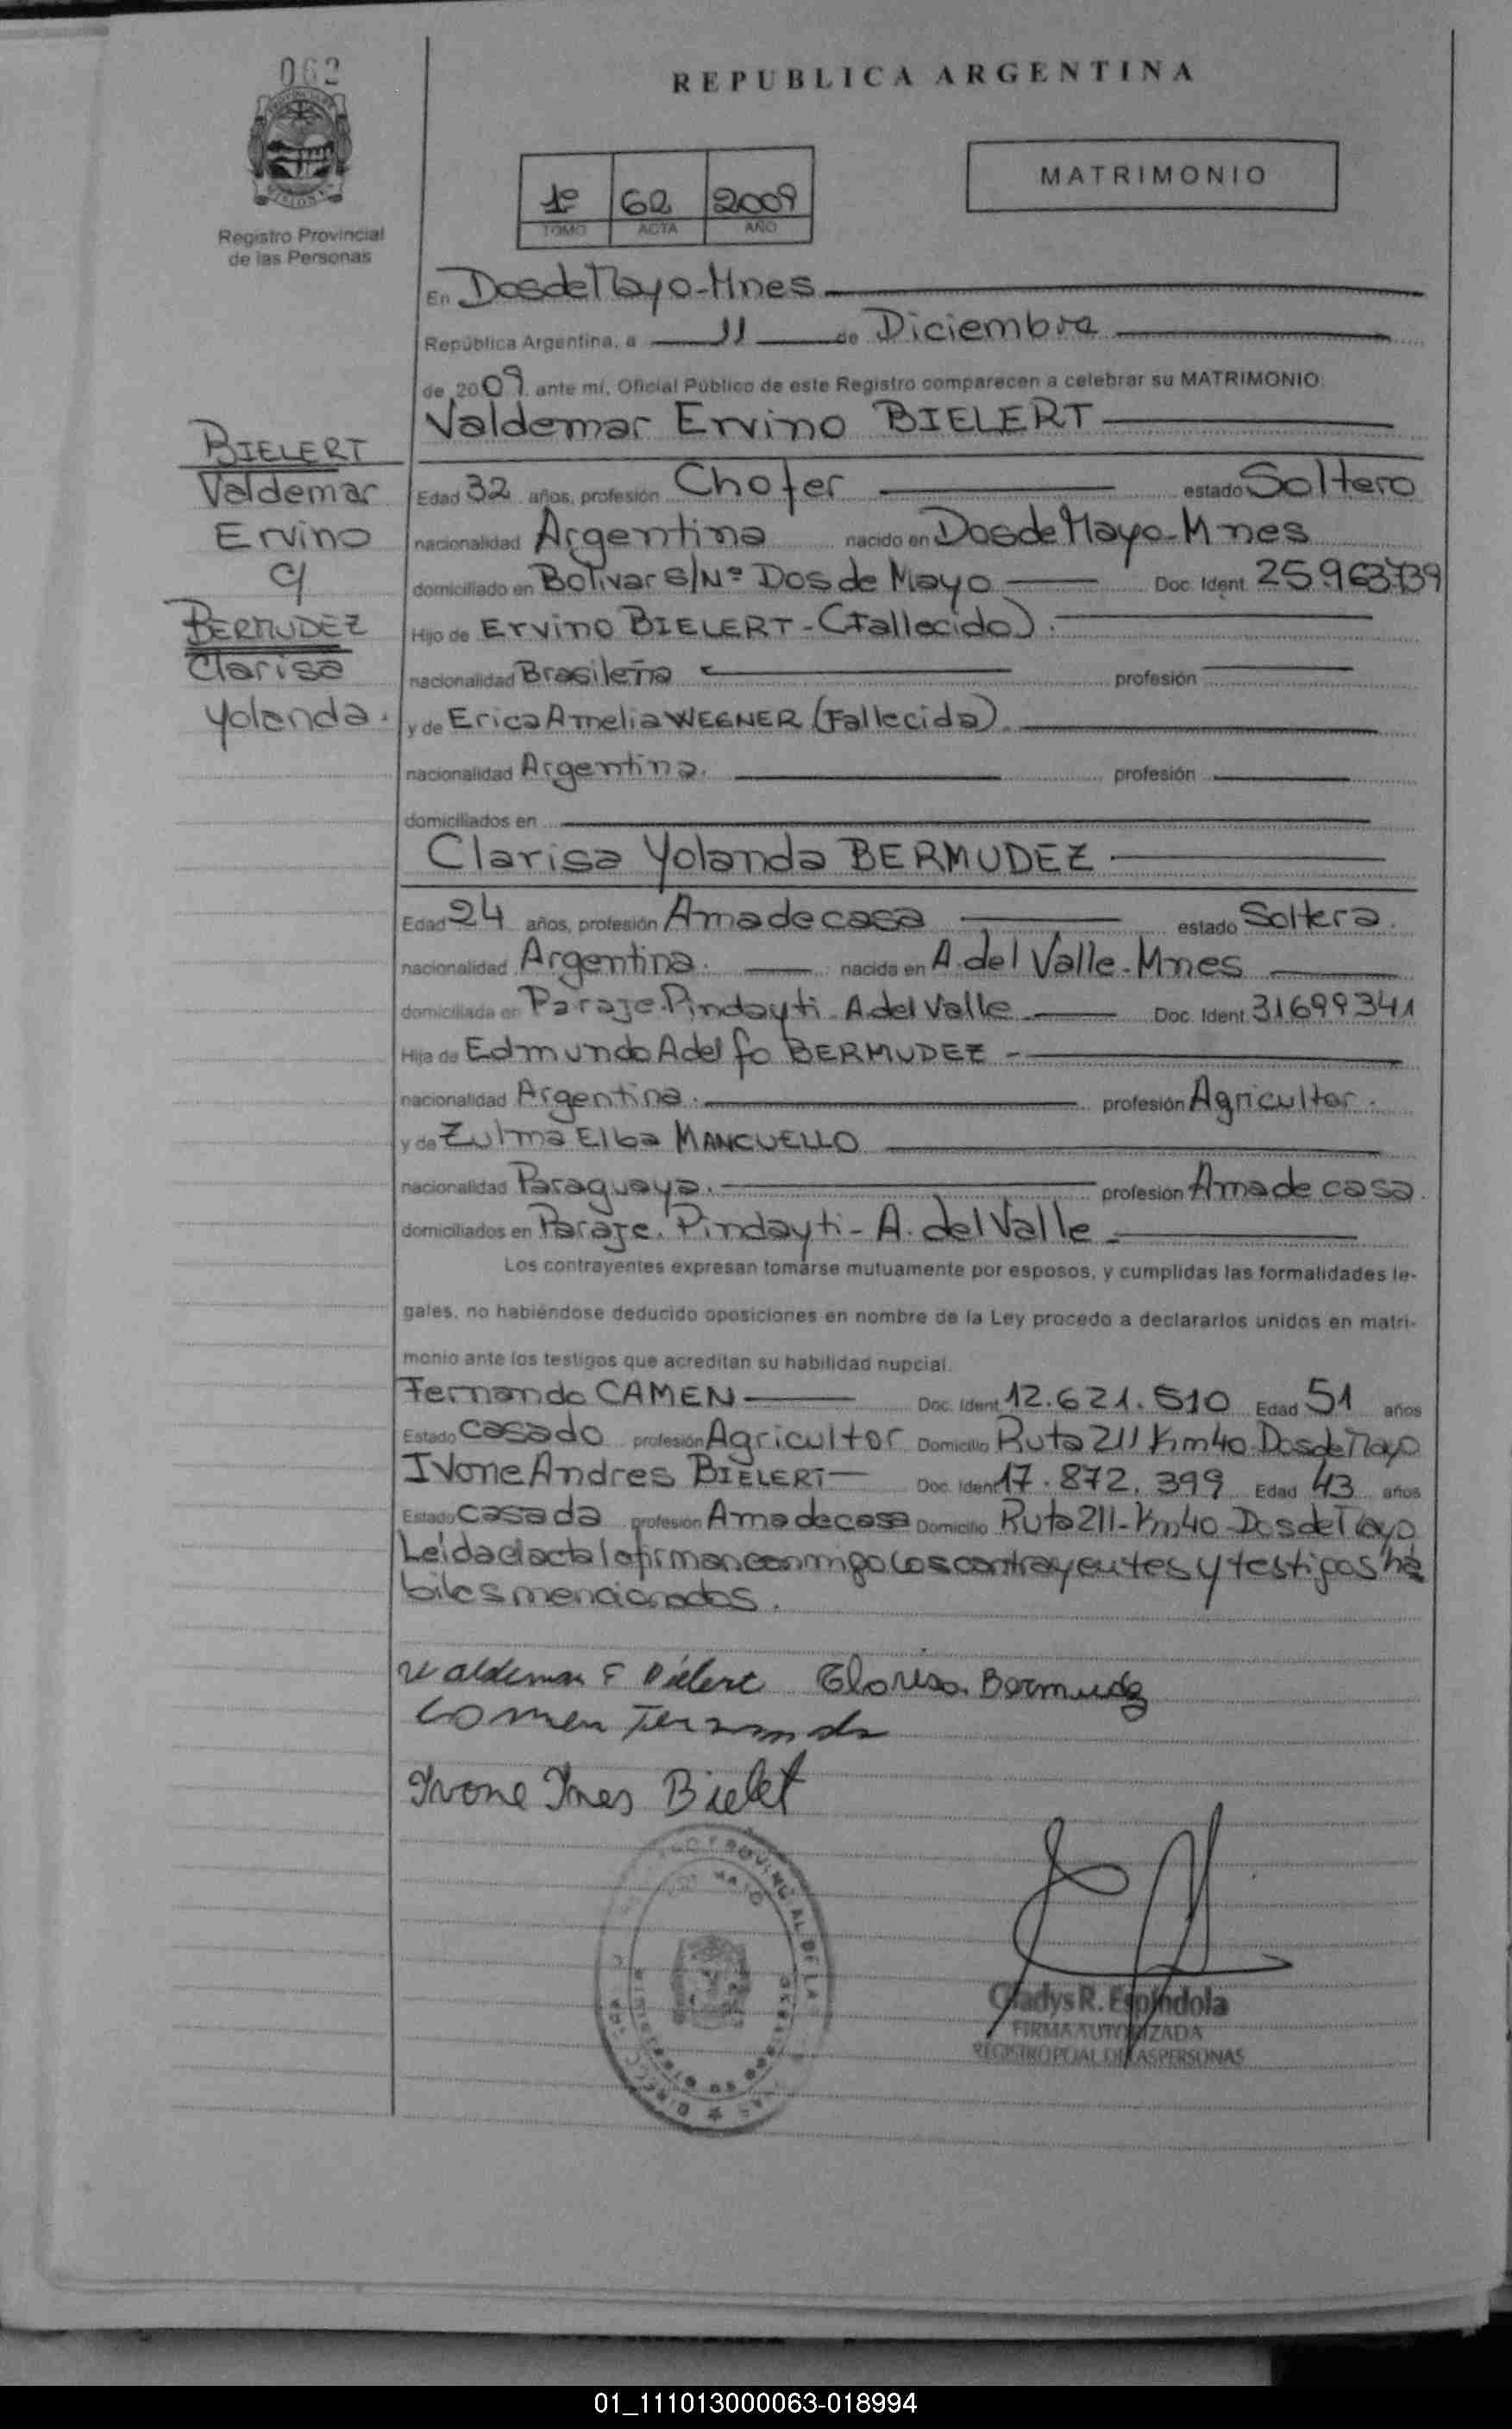 062
REPUBLICA ARGENTINA
1º 62 2009
TOMO ACTA AÑO
MATRIMONIO
Registro Provincial
de las Personas
En Dos de Mayo-Mnes
República Argentina, a 11 de Diciembre
de 2009 ante mí, Oficial Público de este Registro comparecen a celebrar su MATRIMONIO:
Valdemar Ervino BIELERT
BIELERT
Valdemar
Ervino
c/
BERMUDEZ
Clarisa
Yolanda.
Edad 32 años, profesión Chofer estado Soltero
nacionalidad Argentina nacido en Dos de Mayo-Mnes
domiciliado en Bolivar S/Nº Dos de Mayo Doc. Ident. 25.963739
Hijo de Ervino BIELERT-(Fallecido).
nacionalidad Brasileña profesión
y de Erica Amelia WEGNER (Fallecida).
nacionalidad Argentina. profesión
domiciliados en
Clarisa Yolanda BERMUDEZ
Edad 24 años, profesión Ama de casa estado Soltera.
nacionalidad Argentina. nacida en A. del Valle-Mnes
domiciliada en Paraje. Pindayti-A. del Valle Doc. Ident. 31699341
Hija de Edmundo Adelfo BERMUDEZ -
nacionalidad Argentina. profesión Agricultor.
y de Zulma Elba MANCUELLO
nacionalidad Paraguaya. profesión Ama de casa.
domiciliados en Paraje. Pindayti-A. del Valle
Los contrayentes expresan tomarse mutuamente por esposos, y cumplidas las formalidades le-
gales, no habiéndose deducido oposiciones en nombre de la Ley procedo a declararlos unidos en matri-
monio ante los testigos que acreditan su habilidad nupcial.
Fernando CAMEN Doc. Ident. 12.621.510 Edad 51 años
Estado casado profesión Agricultor Domicilio Ruta 211 Km40-Dos de Mayo
Ivone Andres BIELERT Doc. Ident. 17.872.399 Edad 43 años
Estado casada profesión Ama de casa Domicilio Ruta 211-Km40-Dos de Mayo
Leída el acta la firman conmigo los contrayentes y testigos há
biles mencionados.
Valdemar E Bielert Clarisa Bermudez
Comen Fernando
Ivone Ines Bielet
Gladys R. Espíndola
FIRMA AUTORIZADA
REGISTRO PCIAL DE LAS PERSONAS
01_111013000063-018994